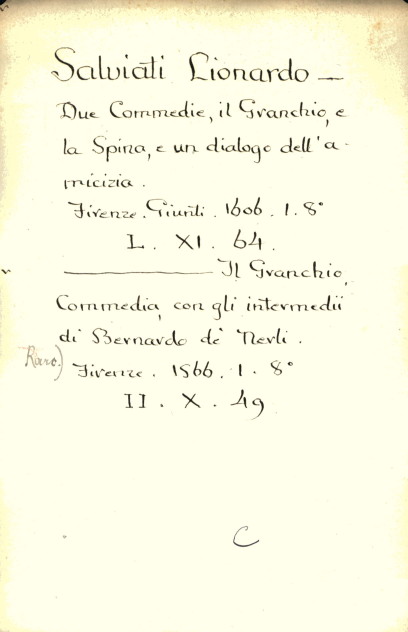 Salviati Lionardo —
Due Commedie, il Granchio, e
la Spina, e un dialogo dell'a-
micizia.
Firenze. Giunti. 1606. 1. 8°
L. XI. 64.
——— Il Granchio,
Commedia, con gli intermedii
di Bernardo de' Nerli.
Raro) Firenze. 1566. 1. 8°
II. X. 49
C